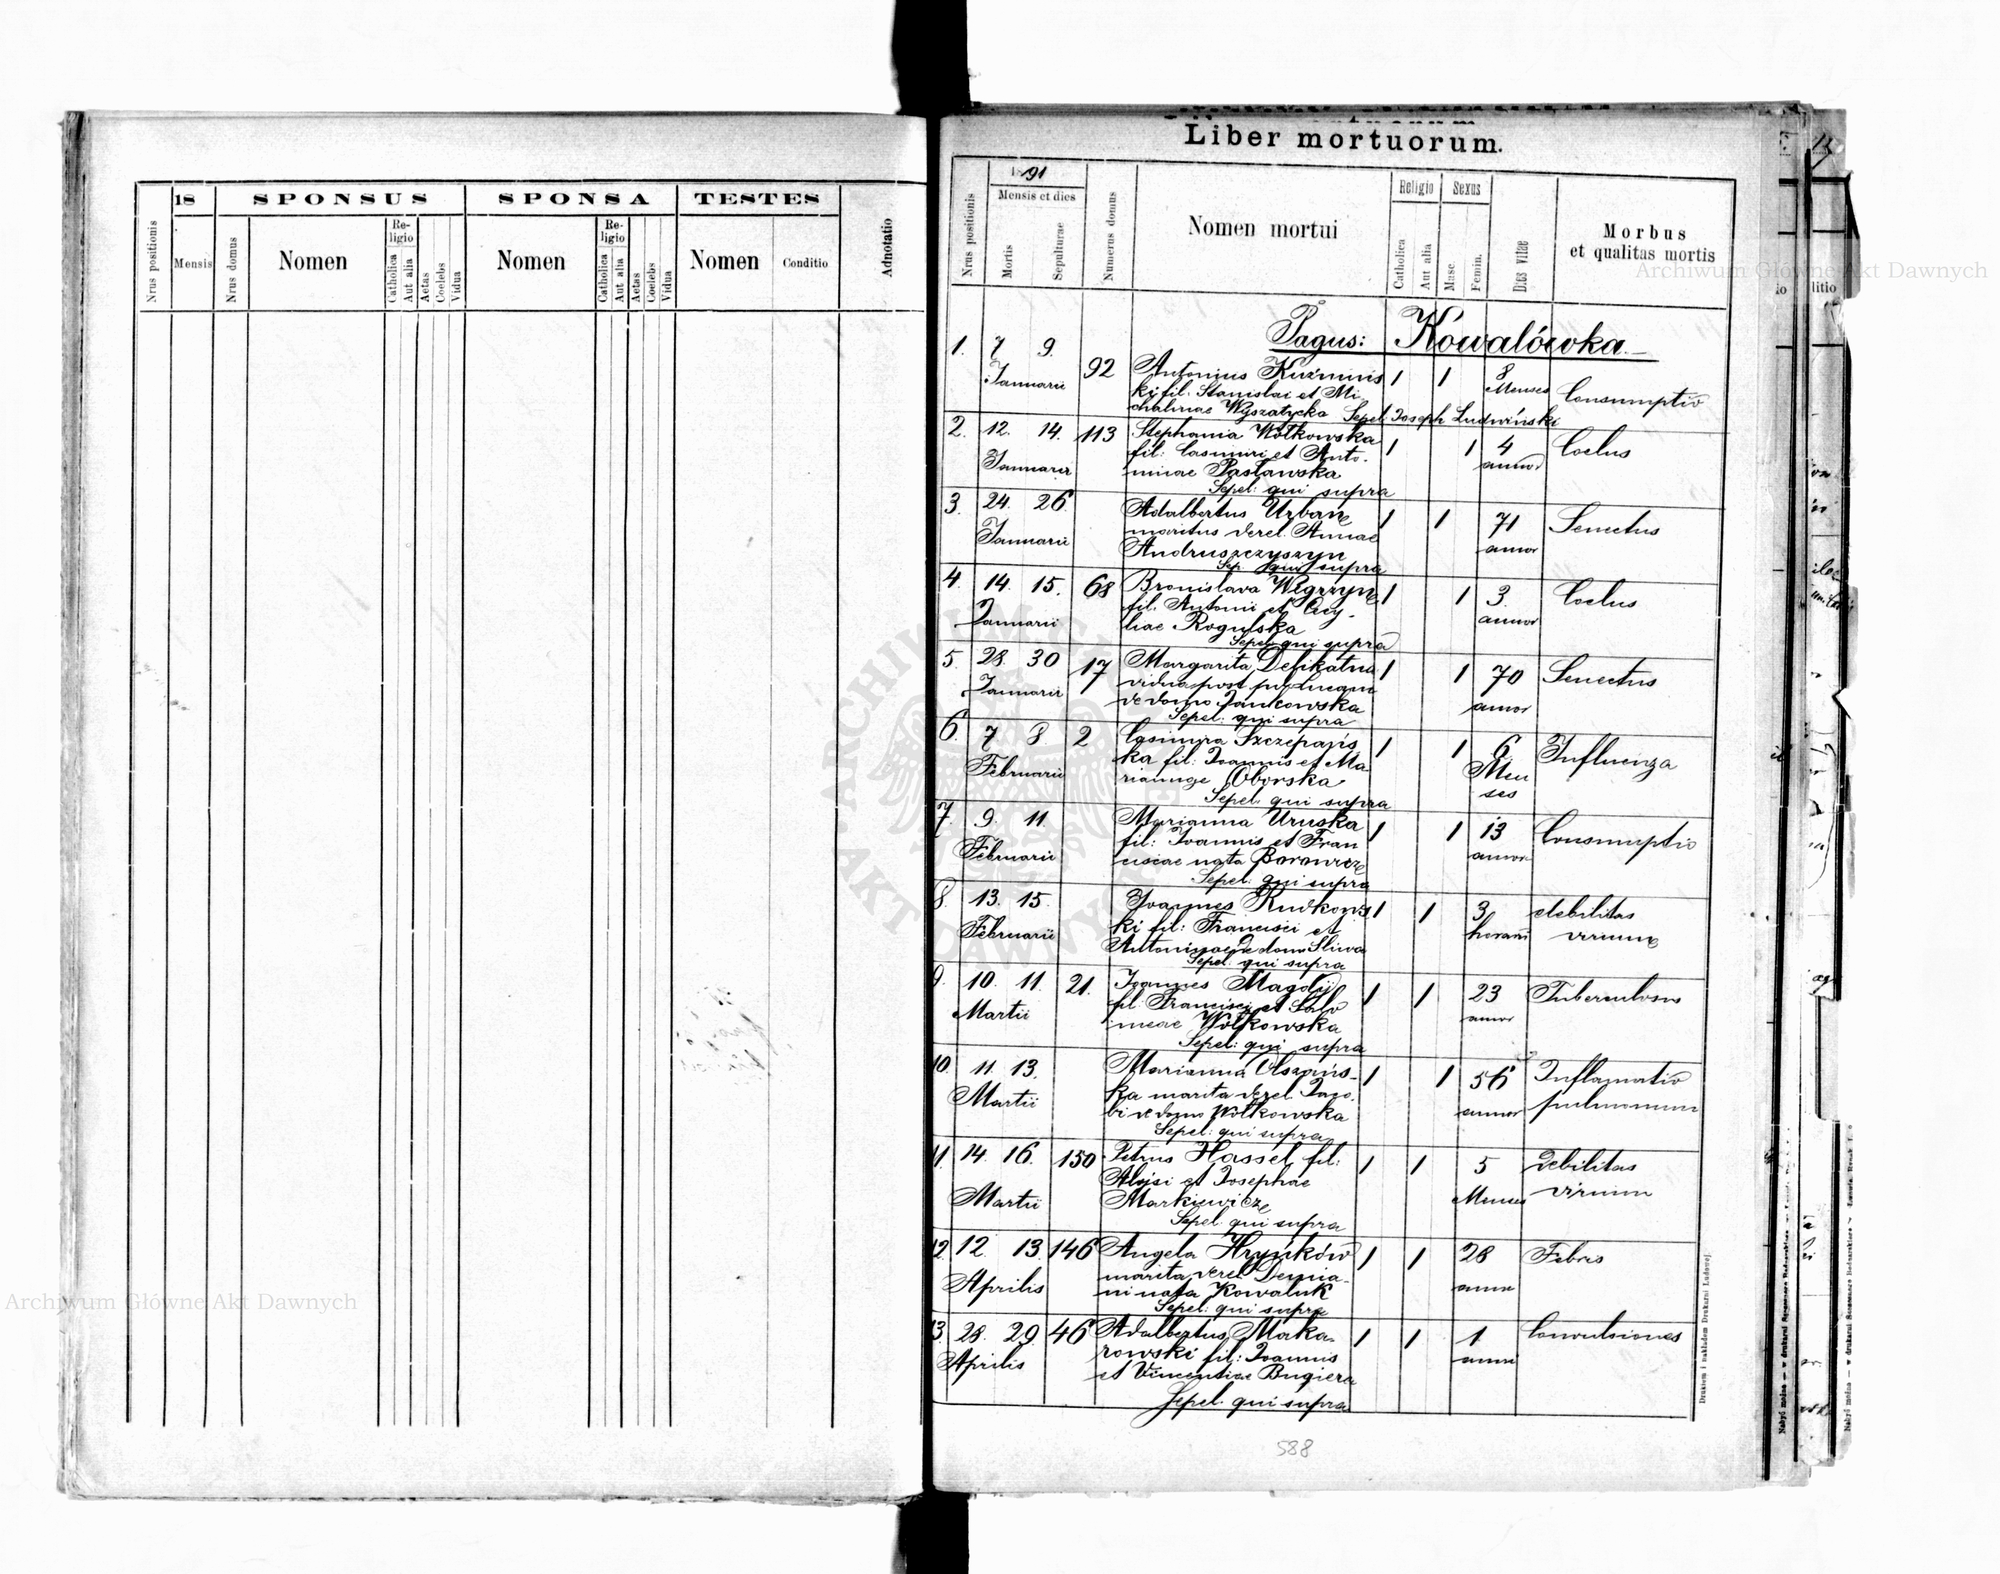 18
SPONSUS
SPONSA
TESTES
Nrus positionis
Mensis
Nrus domus
Nomen
Religio
Catholica
Aut alia
Aetas
Coelebs
Vidua
Nomen
Religio
Catholica
Aut alia
Aetas
Coelebs
Vidua
Nomen
Conditio
Adnotatio
Liber mortuorum.
Nrus positionis
1891
Mensis et dies
Mortis
Sepulturae
Numerus domus
Nomen mortui
Religio
Catholica
Aut alia
Sexus
Masc.
Femin.
Dies vitae
Morbus
et qualitas mortis
Pagus: Kowalówka.
1. 7 9. Januarii 92 Antonius Kuźmińs
ki fil. Stanislai et Mi
chalinae Wyszatycka Sepel. Joseph Ludwiński
1 1 8 Menses Consumptio
2. 12. 14. Januarii 113 Stephania Wołkowska
fil: Casimiri et Anto-
ninae Pasławska
Sepel: qui supra
1 1 4 annor Coelus
3. 24. 26. Januarii Adalbertus Urban
maritus derel. Annae
Andruszczyszyn
Sep. qui supra
1 1 71 annor Senectus
4. 14. 15. Januarii 68 Bronislava Węgrzyn
fil. Antonii et Cecy-
liae Rogulska
Sepel: qui supra
1 1 3. annor Coelus
5. 28. 30 Januarii 17 Margarita Delikatna
vidua post
de domo Jankowska
Sepel: qui supra
1 1 70 annor Senectus
6. 7 8. Februarii 2 Casimira Szczepańs
ka fil: Joannis et Ma
riannae Oborska
Sepel. qui supra
1 1 6 Men
ses Influenza
7. 9. 11. Februarii Marianna Uruska
fil: Joannis et Fran
ciscae nata Borowicz
Sepel: qui supra
1 1 13 annor Consumptio
8. 13. 15. Februarii Joannes Rudkows
ki fil: Francisci et
Antoninae de domo Sliwa
Sepel. qui supra
1 1 3 horarū debilitas
virium
9. 10. 11. Martii 21. Joannes Magdij
fil. Francisci et Salo
meae Wołkowska
Sepel: qui supra
1 1 23 annor Tuberculosis
10. 11. 13. Martii Marianna Olszańs-
ka marita derel. Jaco-
bi de domo Wołkowska
Sepel: qui supra
1 1 56 annor Inflamatio
pulmonum
11. 14. 16. Martii 150 Petrus Hassel fil:
Aloisi et Josephae
Markiewicz
Sepel. qui supra
1 1 5 Menses debilitas
virium
12. 12. 13. Aprilis 146 Angela Hryńków
marita derel. Demia-
ni nata Kowaluk
Sepel: qui supra
1 1 28 annor Febris
13. 28. 29. Aprilis 46 Adalbertus Maka-
rowski fil: Joannis
et Vincentiae Bugiera
Sepel. qui supra
1 1 1 anni Convulsiones
Drukiem i nakładem Drukarni Ludowej.
588
Archiwum Główne Akt Dawnych
Archiwum Główne Akt Dawnych
ARCHIWUM GŁÓWNE AKT DAWNYCH